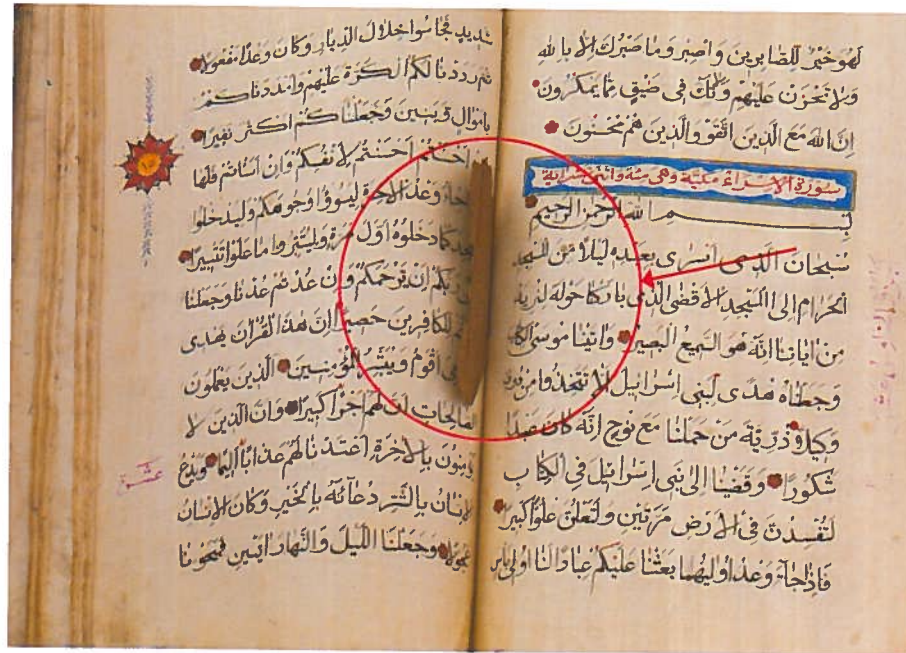 لَهُوَ خَيْرٌ لِلصَّابِرِينَ وَاصْبِرْ وَمَا صَبْرُكَ اِلَّا بِاللهِ
وَلَا تَحْزَنْ عَلَيْهِمْ وَلَا تَكُ فِى ضَيْقٍ مِمَّا يَمْكُرُونَ
اِنَّ اللهَ مَعَ الَّذِينَ اتَّقَوْ وَالَّذِينَ هُمْ مُحْسِنُونَ
سورة الاسراء مكية وهى مئة واثنى عشر اية
بِسْمِ اللهِ الرَّحْمٰنِ الرَّحِيمِ
سُبْحَانَ الَّذِى اَسْرٰى بِعَبْدِهِ لَيْلًا مِنَ الْمَسْجِدِ
الْحَرَامِ اِلَى الْمَسْجِدِ الْاَقْصَى الَّذِى بَارَكْنَا حَوْلَهُ لِنُرِيَهُ
مِنْ اٰيَاتِنَا اِنَّهُ هُوَ السَّمِيعُ الْبَصِيرُ وَاٰتَيْنَا مُوسَى الْكِتَابَ
وَجَعَلْنَاهُ هُدًى لِبَنِى اِسْرَائِيلَ اَلَّا تَتَّخِذُوا مِنْ دُونِى
وَكِيلًا ذُرِّيَّةَ مَنْ حَمَلْنَا مَعَ نُوحٍ اِنَّهُ كَانَ عَبْدًا
شَكُورًا وَقَضَيْنَا اِلٰى بَنِى اِسْرَائِيلَ فِى الْكِتَابِ
لَتُفْسِدُنَّ فِى الْاَرْضِ مَرَّتَيْنِ وَلَتَعْلُنَّ عُلُوًّا كَبِيرًا
فَاِذَا جَاءَ وَعْدُ اُولٰيهُمَا بَعَثْنَا عَلَيْكُمْ عِبَادًا لَنَا اُولِى بَاْسٍ
شَدِيدٍ فَجَاسُوا خِلَالَ الدِّيَارِ وَكَانَ وَعْدًا مَفْعُولًا
ثُمَّ رَدَدْنَا لَكُمُ الْكَرَّةَ عَلَيْهِمْ وَاَمْدَدْنَاكُمْ
بِاَمْوَالٍ وَبَنِينَ وَجَعَلْنَاكُمْ اَكْثَرَ نَفِيرًا
اَحْسَنْتُمْ اَحْسَنْتُمْ لِاَنْفُسِكُمْ وَاِنْ اَسَاْتُمْ فَلَهَا
جَاءَ وَعْدُ الْاٰخِرَةِ لِيَسُوؤُا وُجُوهَكُمْ وَلِيَدْخُلُوا
كَمَا دَخَلُوهُ اَوَّلَ مَرَّةٍ وَلِيُتَبِّرُوا مَا عَلَوْا تَتْبِيرًا
رَبُّكُمْ اَنْ يَرْحَمَكُمْ وَاِنْ عُدْتُمْ عُدْنَا وَجَعَلْنَا
لِلْكَافِرِينَ حَصِيرًا اِنَّ هٰذَا الْقُرْاٰنَ يَهْدِى
اَقْوَمُ وَيُبَشِّرُ الْمُؤْمِنِينَ الَّذِينَ يَعْمَلُونَ
الصَّالِحَاتِ اَنَّ لَهُمْ اَجْرًا كَبِيرًا وَاَنَّ الَّذِينَ لَا
يُؤْمِنُونَ بِالْاٰخِرَةِ اَعْتَدْنَا لَهُمْ عَذَابًا اَلِيمًا وَيَدْعُ
الْاِنْسَانُ بِالشَّرِّ دُعَائَهُ بِالْخَيْرِ وَكَانَ الْاِنْسَانُ
عَجُولًا وَجَعَلْنَا اللَّيْلَ وَالنَّهَارَ اٰيَتَيْنِ فَمَحَوْنَا